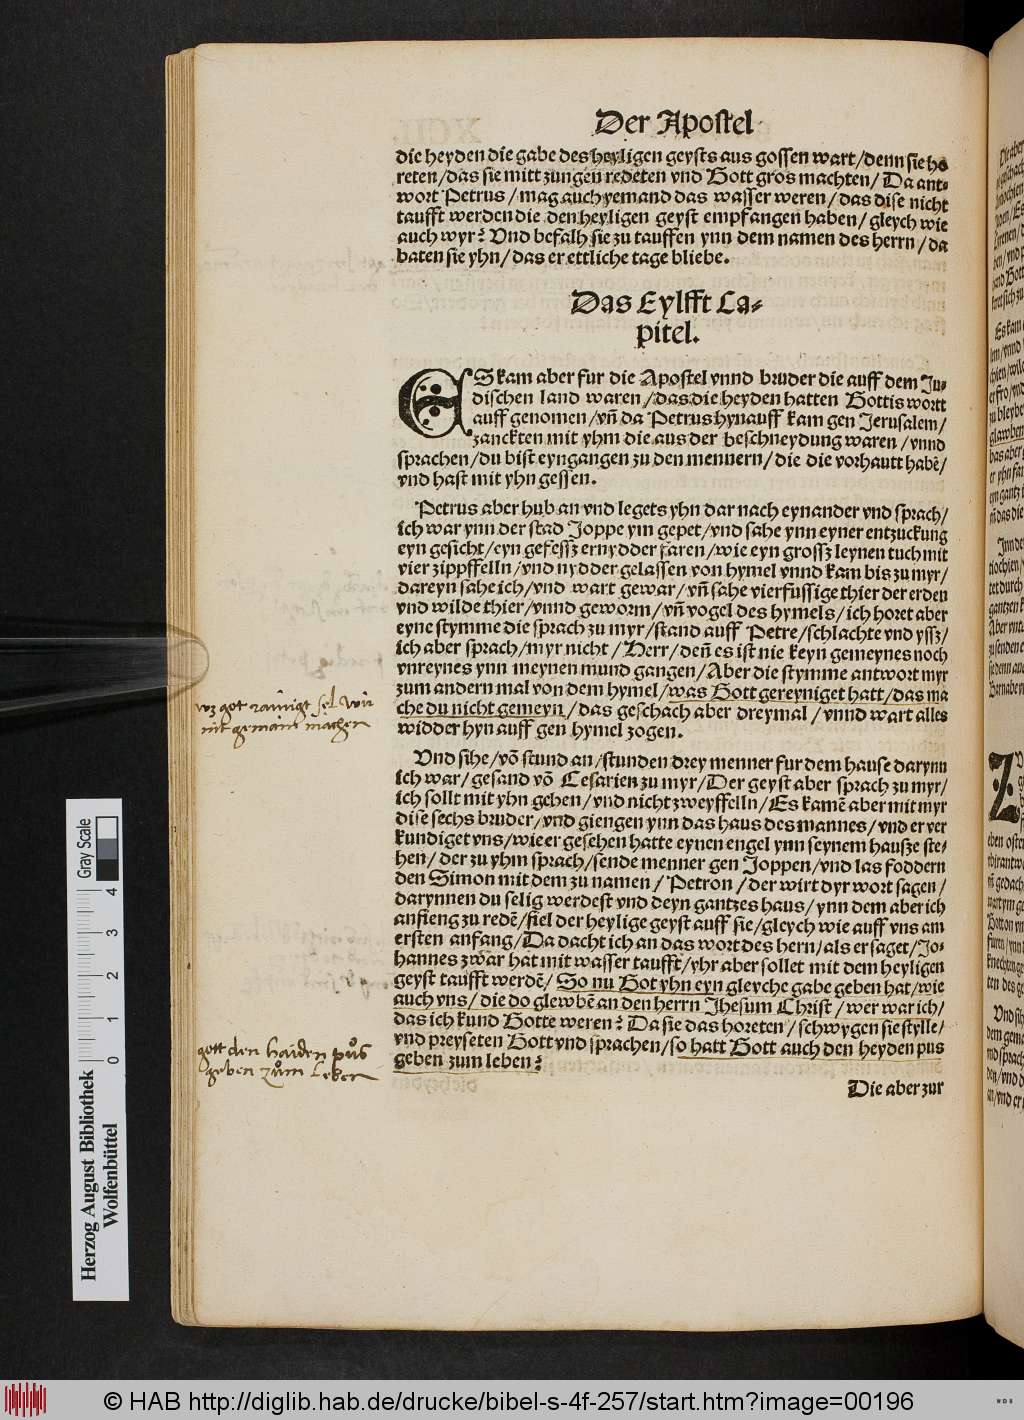 Der Apostel
die heyden die gabe des heyligen geysts aus gossen wart/denn sie ho
reten/das sie mitt zungen redeten vnd Gott gros machten/Da ant⸗
wort Petrus/mag auch yemand das wasser weren/das dise nicht
taufft werden die den heyligen geyst empfangen haben/gleych wie
auch wyr? Vnd befalh sie zu tauffen ynn dem namen des herrn/da
baten sie yhn/das er ettliche tage bliebe.
Das Eylfft Ca⸗
pitel.
ES kam aber fur die Apostel vnnd bruder die auff dem Ju⸗
dischen land waren/das die heyden hatten Gottis wort
auff genomen/vñ da Petrus hynauff kam gen Jerusalem/
zanckten mit yhm die aus der beschneydung waren/vnnd
sprachen/du bist eyngangen zu den mennern/die die vorhautt habẽ/
vnd hast mit yhn gessen.
Petrus aber hub an vnd legets yhn dar nach eynander vnd sprach/
ich war ynn der stad Joppe ym gepet/vnd sahe ynn eyner entzuckung
eyn gesicht/eyn gefessz ernydder faren/wie eyn grossz leynen tuch mit
vier zippffelln/vnd nydder gelassen von hymel vnnd kam bis zu myr/
dareyn sahe ich/vnd wart gewar/vñ sahe vierfussige thier der erden
vnd wilde thier/vnnd geworm/vñ vogel des hymels/ich horet aber
eyne stymme die sprach zu myr/stand auff Petre/schlachte vnd yssz/
ich aber sprach/myr nicht/Herr/deñ es ist nie keyn gemeynes noch
vnreynes ynn meynen mund gangen/Aber die stymme antwort myr
zum andern mal von dem hymel/was Gott gereyniget hatt/das ma
che du nicht gemeyn/das geschach aber dreymal/vnnd wart alles
widder hyn auff gen hymel zogen.
wz got rainigt sol wir
nit gemain machen
Vnd sihe/võ stund an/stunden drey menner fur dem hause darynn
ich war/gesand võ Cesarien zu myr/Der geyst aber sprach zu myr/
ich sollt mit yhn gehen/vnd nicht zweyffelln/Es kamẽ aber mit myr
dise sechs bruder/vnd giengen ynn das haus des mannes/vnd er ver
kundiget vns/wie er gesehen hatte eynen engel ynn seynem hausze ste⸗
hen/der zu yhm sprach/sende menner gen Joppen/vnd las foddern
den Simon mit dem zu namen/Petron/der wirt dyr wort sagen/
darynnen du selig werdest vnd deyn gantzes haus/ynn dem aber ich
anfieng zu redẽ/fiel der heylige geyst auff sie/gleych wie auff vns am
ersten anfang/Da dacht ich an das wort des hern/als er saget/Jo⸗
hannes zwar hat mit wasser taufft/yhr aber sollet mit dem heyligen
geyst taufft werdẽ/So nu Got yhn eyn gleyche gabe geben hat/wie
auch vns/die do glewbẽ an den herrn Jhesum Christ/wer war ich/
das ich kund Gotte weren? Da sie das horeten/schwygen sie stylle/
vnd preyseten Gott vnd sprachen/so hatt Gott auch den heyden pus
geben zum leben?
gott den haiden pus
geben zum leben
Die aber zur
Herzog August Bibliothek
Wolfenbüttel
Gray Scale
0 1 2 3 4
© HAB http://diglib.hab.de/drucke/bibel-s-4f-257/start.htm?image=00196